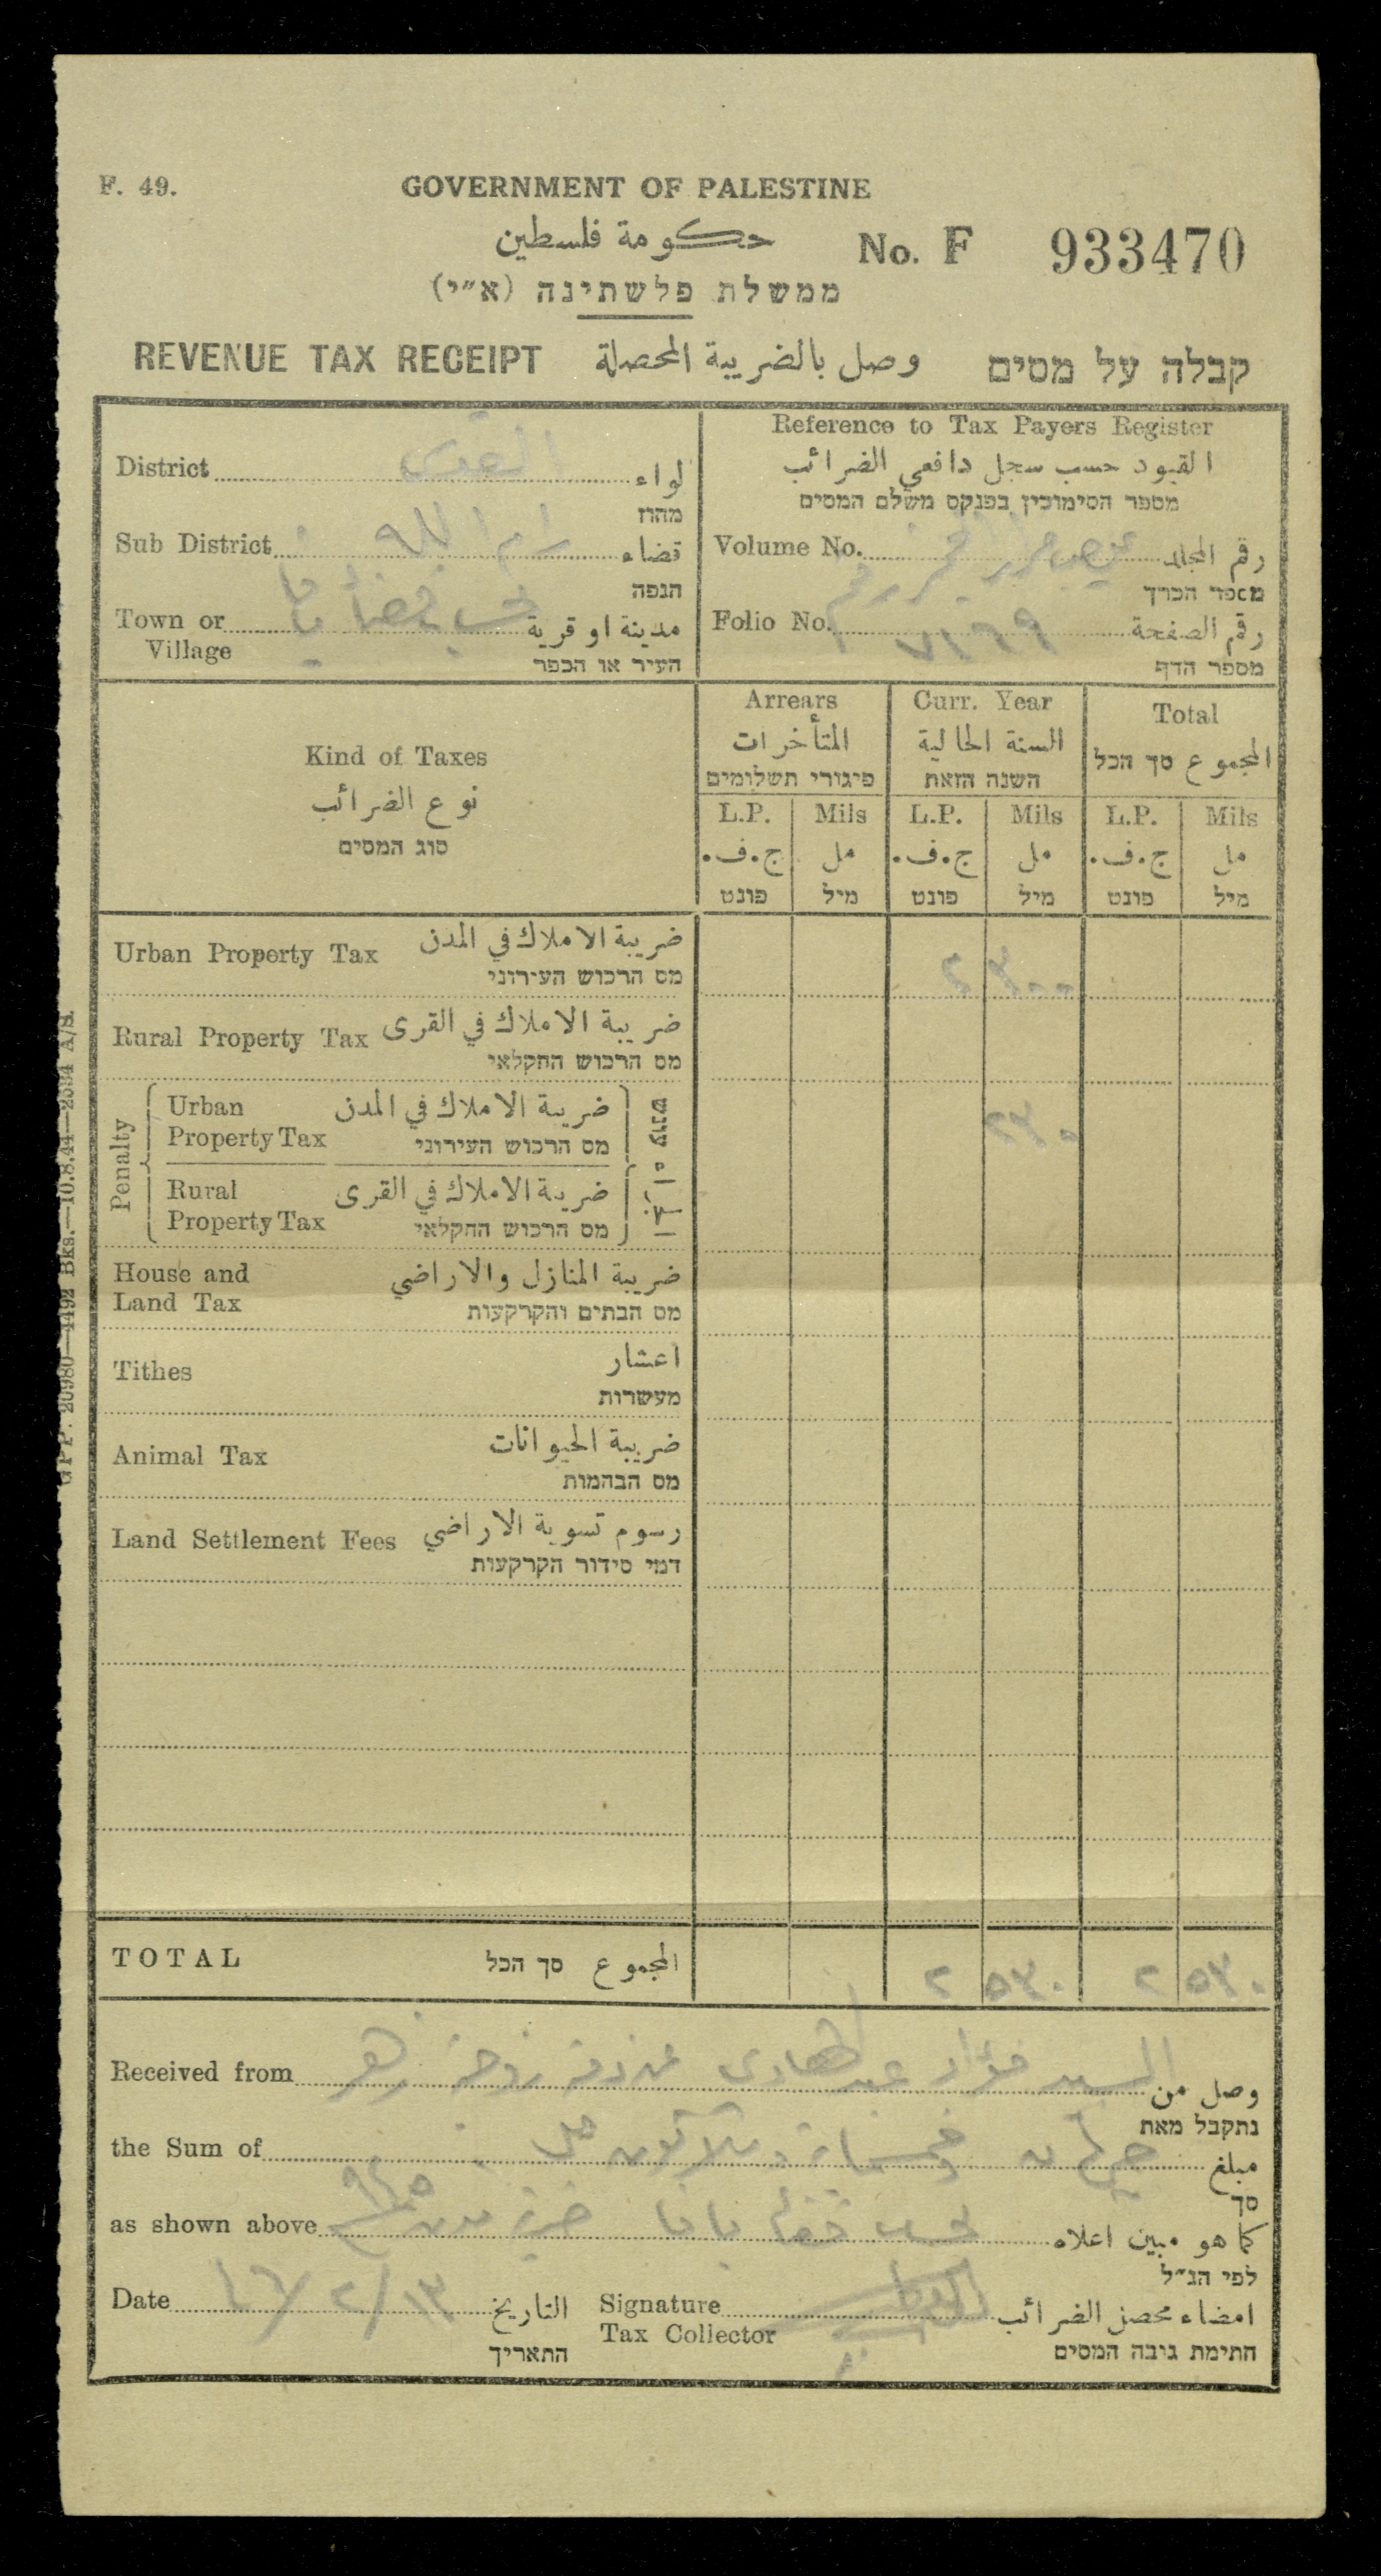 F. 49.
GOVERNMENT OF PALESTINE
حكومة فلسطين
No. F 933470
ממשלת פלשתינה (א״י)
REVENUE TAX RECEIPT وصل بالضريبة المحصلة קבלה על מסים
Reference to Tax Payers Register
القيود حسب سجل دافعي الضرائب
מספר הסימוכין בפנקס משלם המסים
District القدس لواء
מחוז
Sub District رام الله قضاء
הנפה
Town or Village مدينة او قرية
העיר או הכפר
Volume No. رقم المجلد
מספר הכרך
Folio No. ٧١٩٩ رقم الصفحة
מספר הדף
Kind of Taxes
نوع الضرائب
סוג המסים
Arrears Curr. Year Total
المتأخرات السنة الحالية المجموع סך הכל
פיגורי תשלומים השנה הזאת
L.P. Mils L.P. Mils L.P. Mils
ج.ف. مل ج.ف. مل ج.ف. مل
פונט מיל פונט מיל פונט מיל
Urban Property Tax ضريبة الاملاك في المدن ٢ ٣٠٠
מס הרכוש העירוני
Rural Property Tax ضريبة الاملاك في القرى
מס הרכוש החקלאי
Penalty עונש الجزاء
Urban Property Tax ضريبة الاملاك في المدن ٢٣٠
מס הרכוש העירוני
Rural Property Tax ضريبة الاملاك في القرى
מס הרכוש החקלאי
House and Land Tax ضريبة المنازل والاراضي
מס הבתים והקרקעות
Tithes اعشار
מעשרות
Animal Tax ضريبة الحيوانات
מס הבהמות
Land Settlement Fees رسوم تسوية الاراضي
דמי סידור הקרקעות
TOTAL المجموع סך הכל ٢ ٥٣٠ ٢ ٥٣٠
Received from السيد فؤاد عبد الهادي وصل من
נתקבל מאת
the Sum of جنيهان وخمسماية وثلاثون مل مبلغ
סך
as shown above كما هو مبين اعلاه
לפי הנ״ל
Date ١٣/٢/٤٦ التاريخ
התאריך
Signature Tax Collector امضاء محصل الضرائب
חתימת גובה המסים
GPP. 20980—4492 Bks.—10.8.44—2534 A/S.